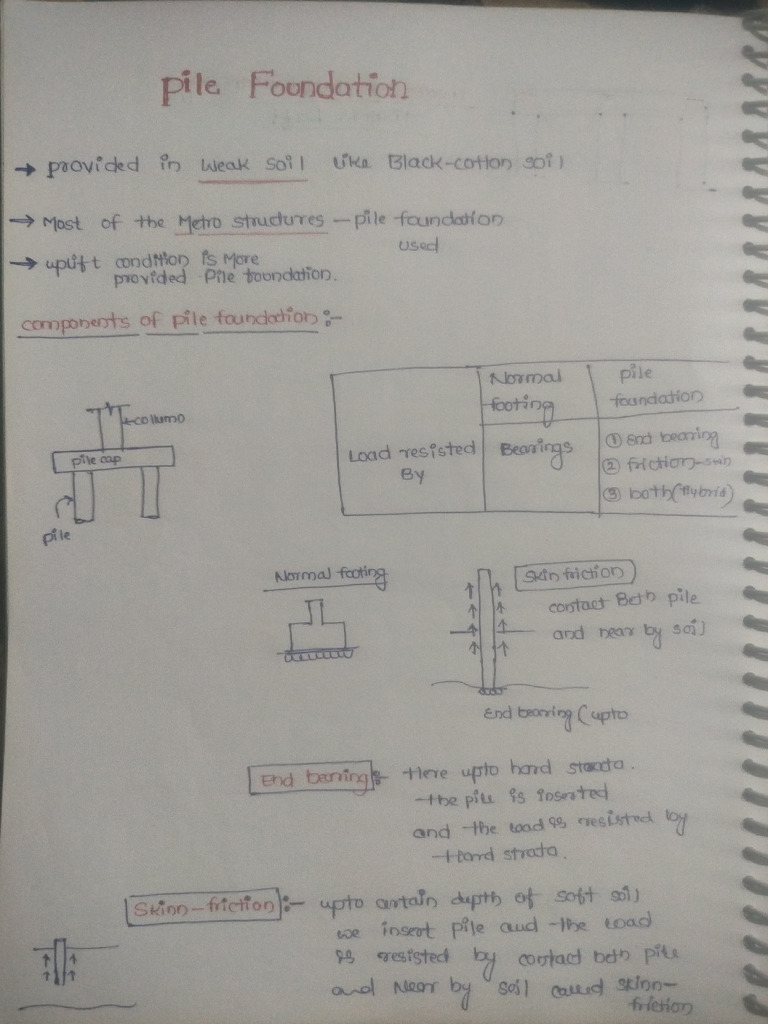 pile Foundation
→ provided in weak soil like Black-cotton soil
→ Most of the Metro structures – pile foundation
used
→ uplift condition is More
provided Pile foundation.
components of pile foundation :-
column
pile cap
pile
Normal footing
pile foundation
Load resisted By
Bearings
① End bearing
② friction-skin
③ both (Hybrid)
Normal footing
Skin friction
contact Beth pile
and near by soil
End bearing (upto
End bearing :- Here upto hard strata.
the pile is inserted
and the load is resisted by
Hard strata.
Skinn-friction :- upto certain depth of soft soil
we insert pile and the load
is resisted by contact beth pile
and Near by soil called skinn-
friction